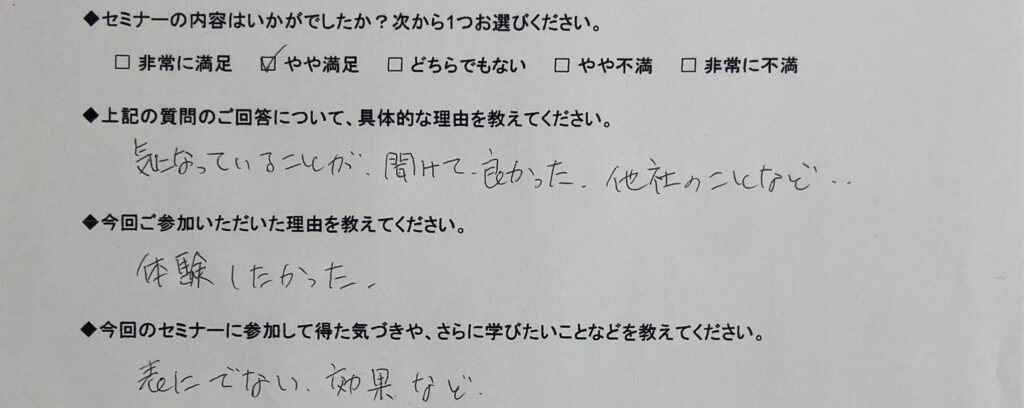 ◆セミナーの内容はいかがでしたか？次から1つお選びください。
□ 非常に満足 ☑ やや満足 □ どちらでもない □ やや不満 □ 非常に不満
◆上記の質問のご回答について、具体的な理由を教えてください。
気になっていることが、聞けて、良かった、他社のことなど‥
◆今回ご参加いただいた理由を教えてください。
体験したかった、
◆今回のセミナーに参加して得た気づきや、さらに学びたいことなどを教えてください。
表にでない、効果など、